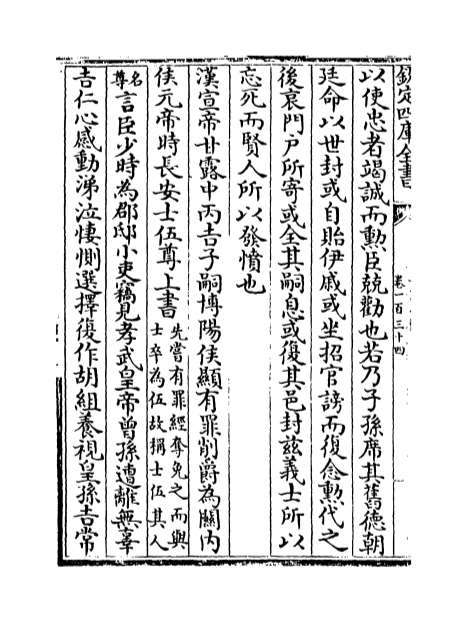 欽定四庫全書
卷一百三十四
以使忠者竭誠而勲臣兢勸也若乃子孫席其舊德朝
廷命以世封或自貽伊戚或坐招官謗而復念勲代之
後哀門户所寄或全其嗣息或復其邑封兹義士所以
忘死而賢人所以發憤也
漢宣帝甘露中丙吉子嗣博陽侯顯有罪削爵為關内
侯元帝時長安士伍尊上書先嘗有罪經奪免之而與
士卒為伍故稱士伍其人
名尊言臣少時為郡邸小吏竊見孝武皇帝曾孫遭離無辜
吉仁心感動涕泣悽惻選擇復作胡組養視皇孫吉常